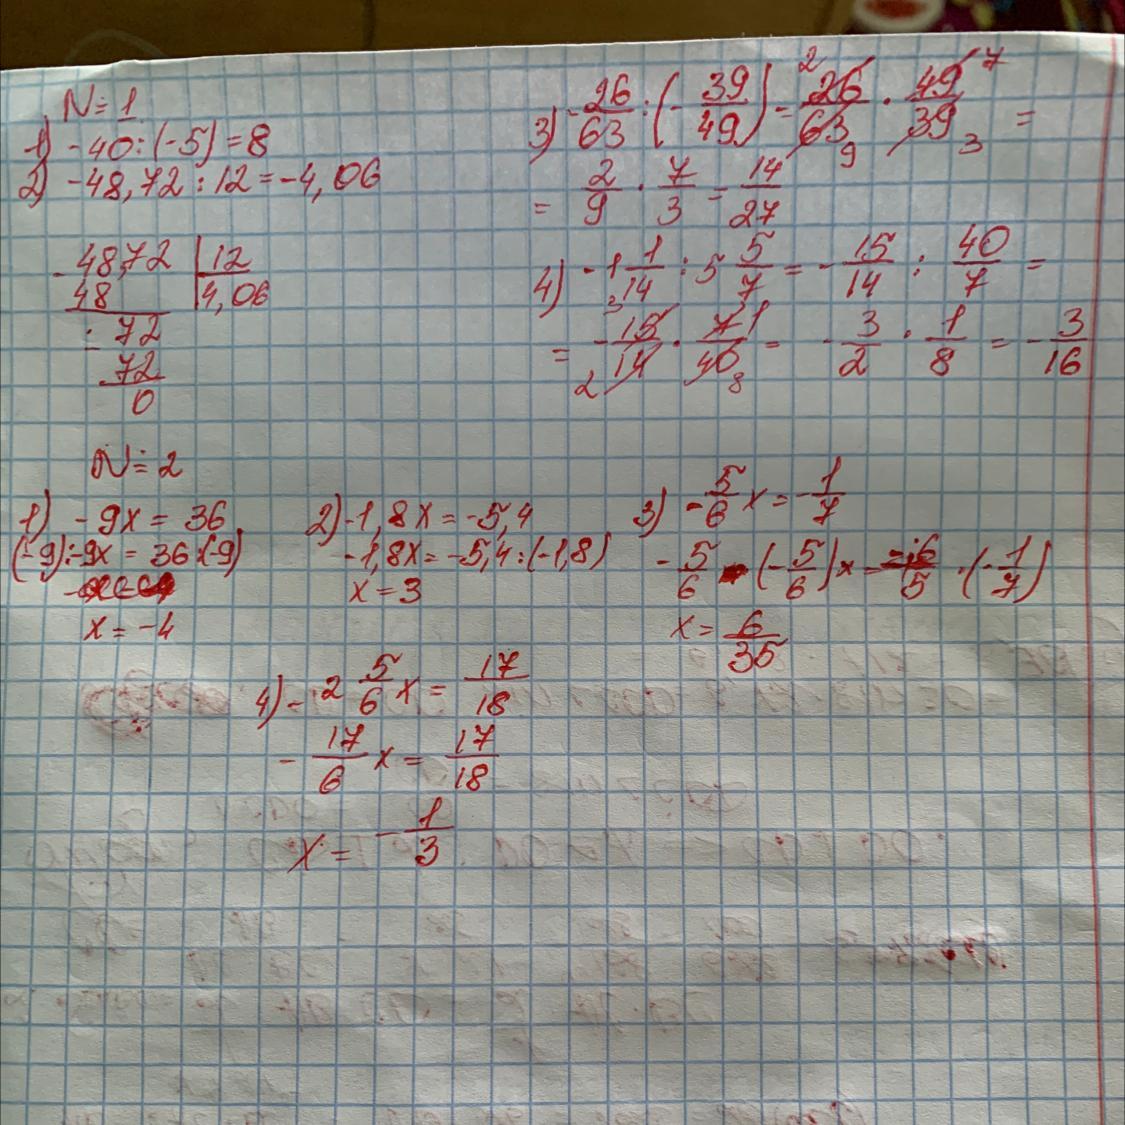 N=1
1) -40:(-5)=8
2) -48,72:12=-4,06
-48,72 | 12
48 | 4,06
-72
72
0
3) -26/63:(-39/49)=26/63·49/39=
2 9 7 3
=2/9·7/3=14/27
4) -1 1/14:5 5/7=-15/14:40/7=
=-15/14·7/40=-3/2·1/8=-3/16
3 2 1 8
N=2
1) -9x=36
(-9):-9x=36:(-9)
x=-4
2) -1,8x=-5,4
-1,8x=-5,4:(-1,8)
x=3
3) -5/6x=-1/7
-5/6 (-5/6)x=-6/5·(-1/7)
x=6/35
4) -2 5/6x=17/18
-17/6x=17/18
x=-1/3